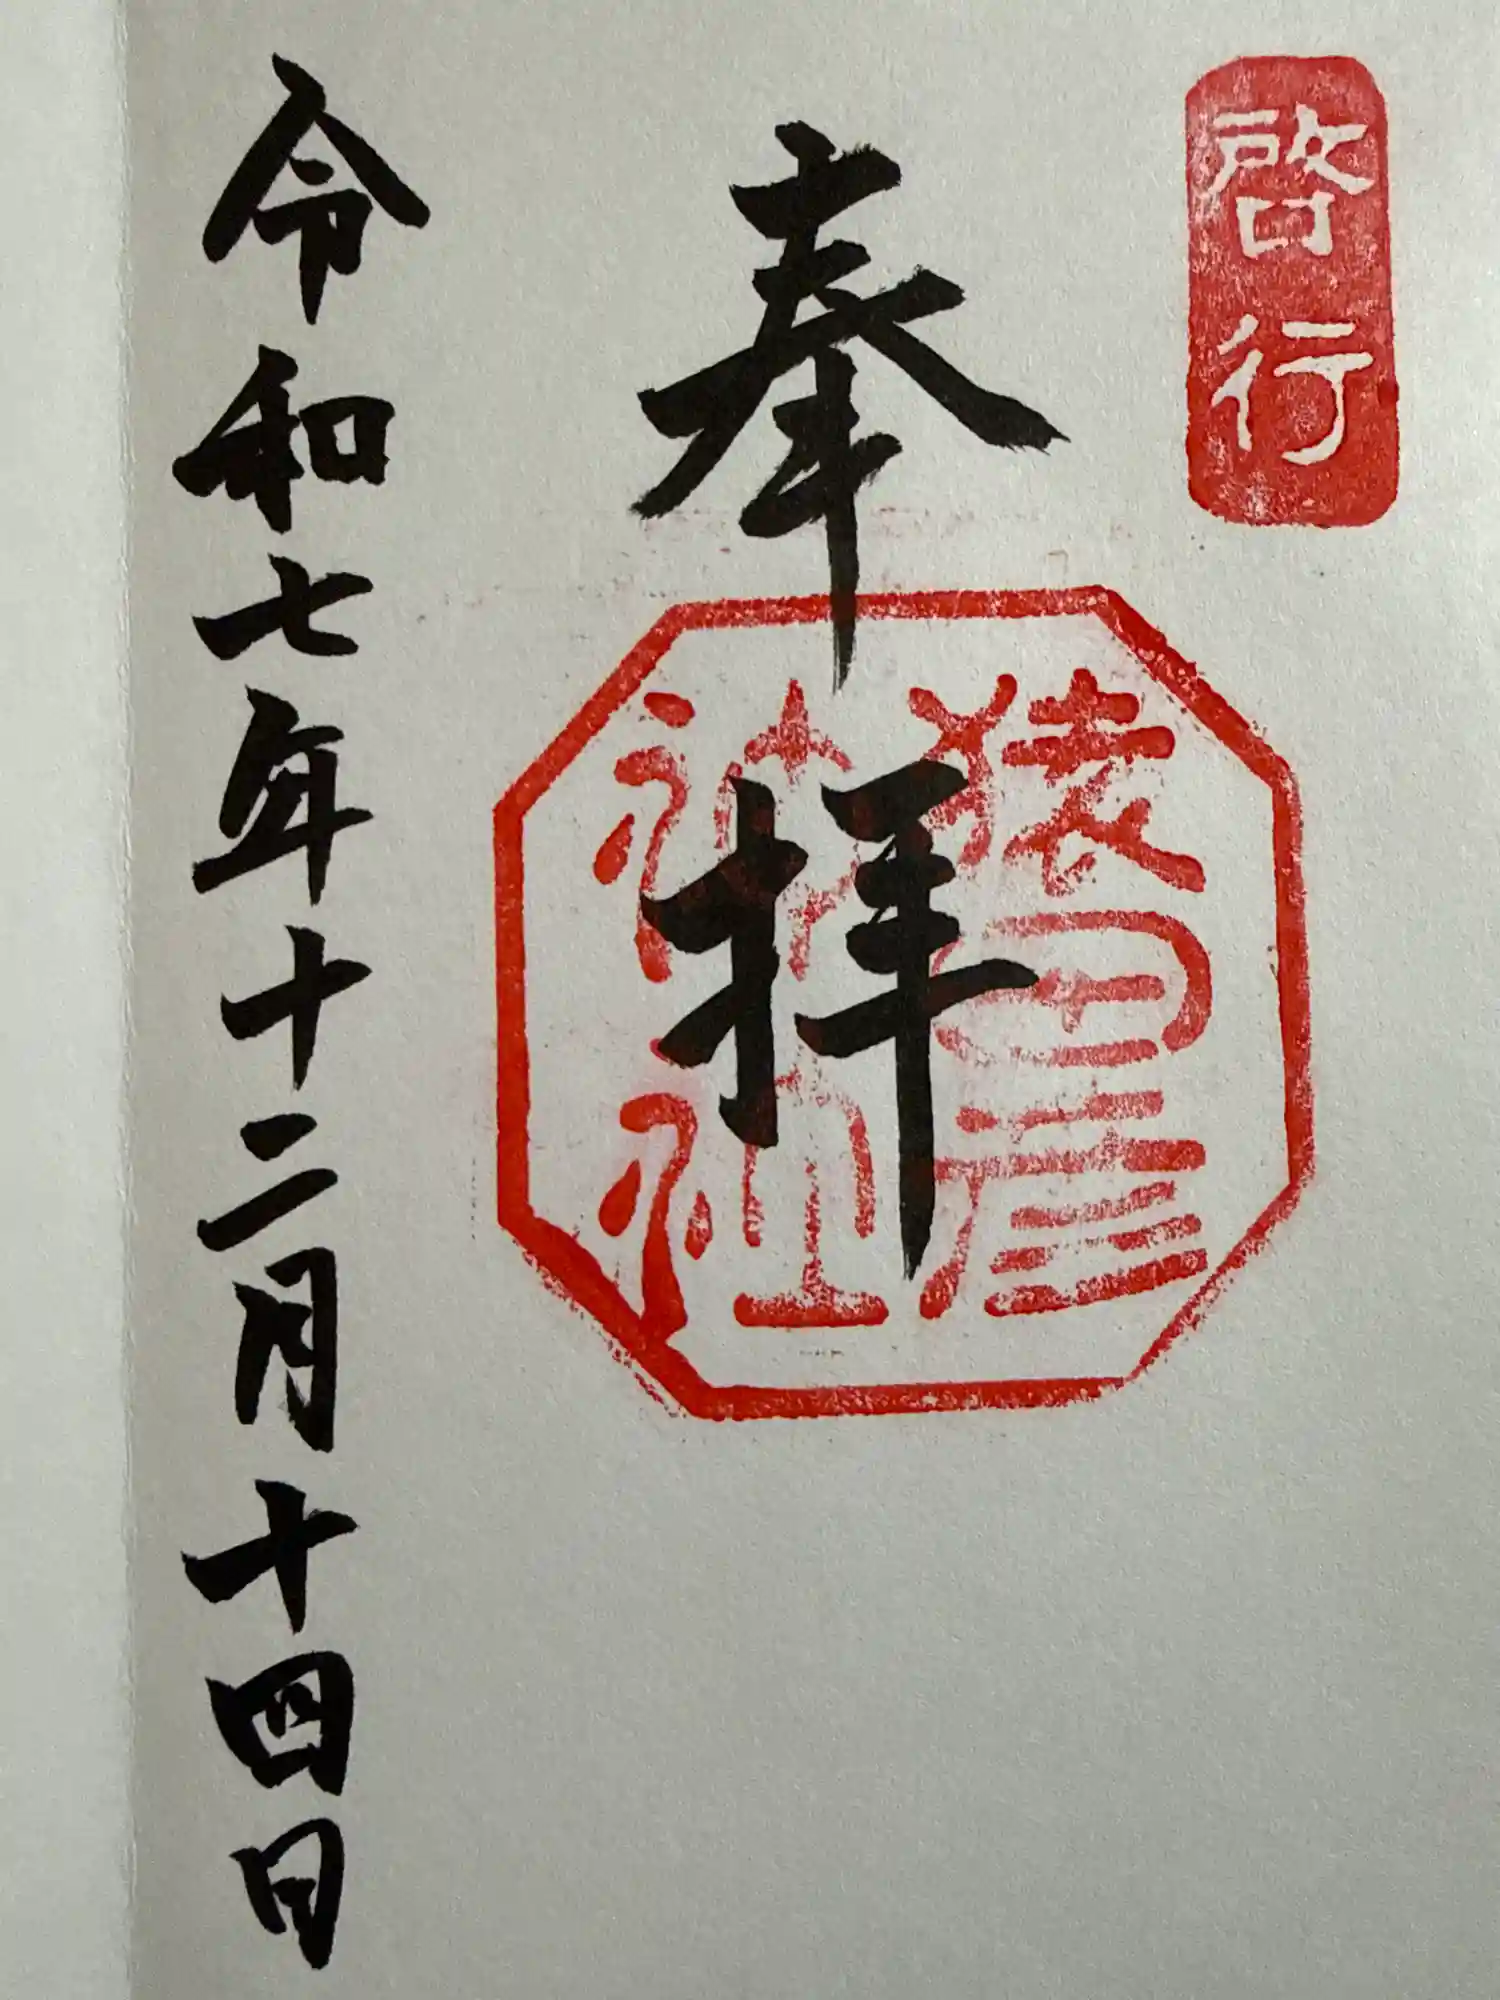 啓行
奉拝
猿田彦
神社
令和七年十二月十四日